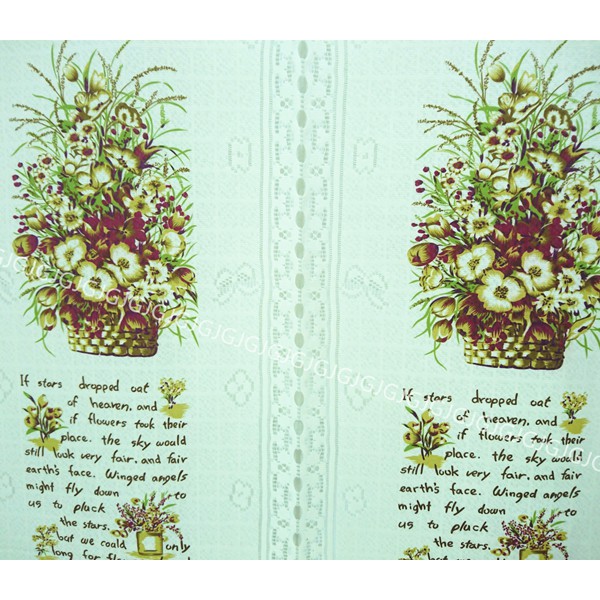 If stars dropped oat
of heaven, and
if flowers took their
place. the sky would
still look very fair. and fair
earth's face. Winged angels
might fly down to
us to pluck
the stars.
but we could only
long for
If stars dropped oat
of heaven, and
if flowers took their
place. the sky would
still look very fair. and fair
earth's face. Winged angels
might fly down to
us to pluck
the stars.
but we could only
JGJGJGJGJGJGJGJGJ